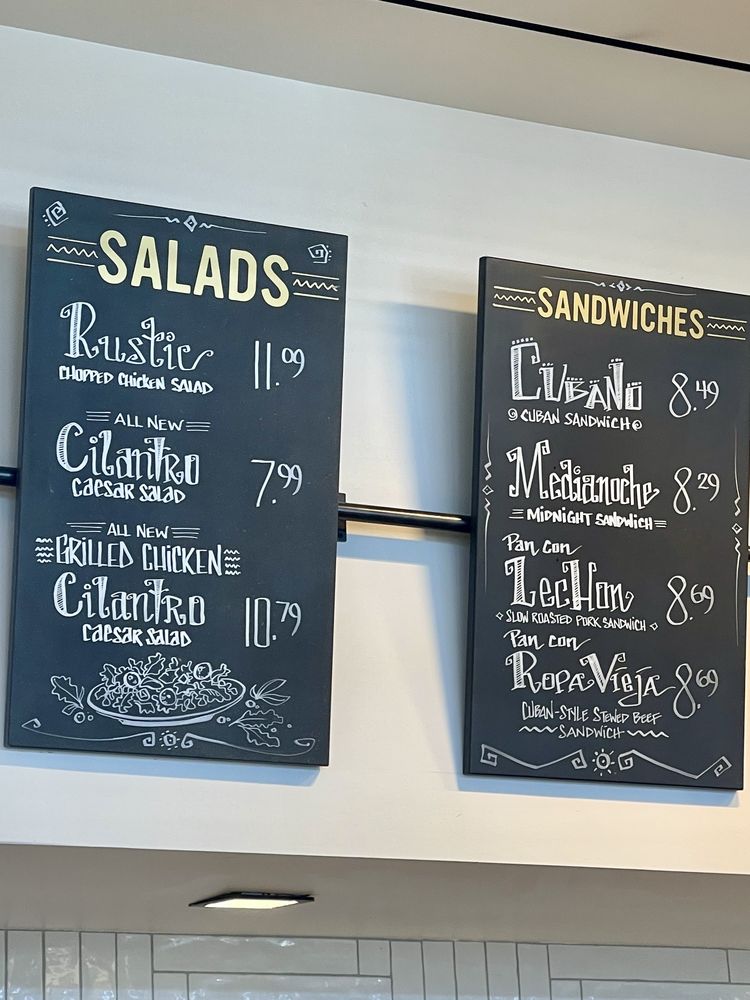 SALADS
Rustic 11.09
CHOPPED CHICKEN SALAD
ALL NEW
Cilantro 7.99
CAESAR SALAD
ALL NEW
GRILLED CHICKEN
Cilantro 10.79
CAESAR SALAD
SANDWICHES
CUBANO 8.49
CUBAN SANDWICH
Medianoche 8.29
MIDNIGHT SANDWICH
Pan con
LecHon 8.69
SLOW ROASTED PORK SANDWICH
Pan con
RopaVieja 8.69
CUBAN-STYLE STEWED BEEF
SANDWICH